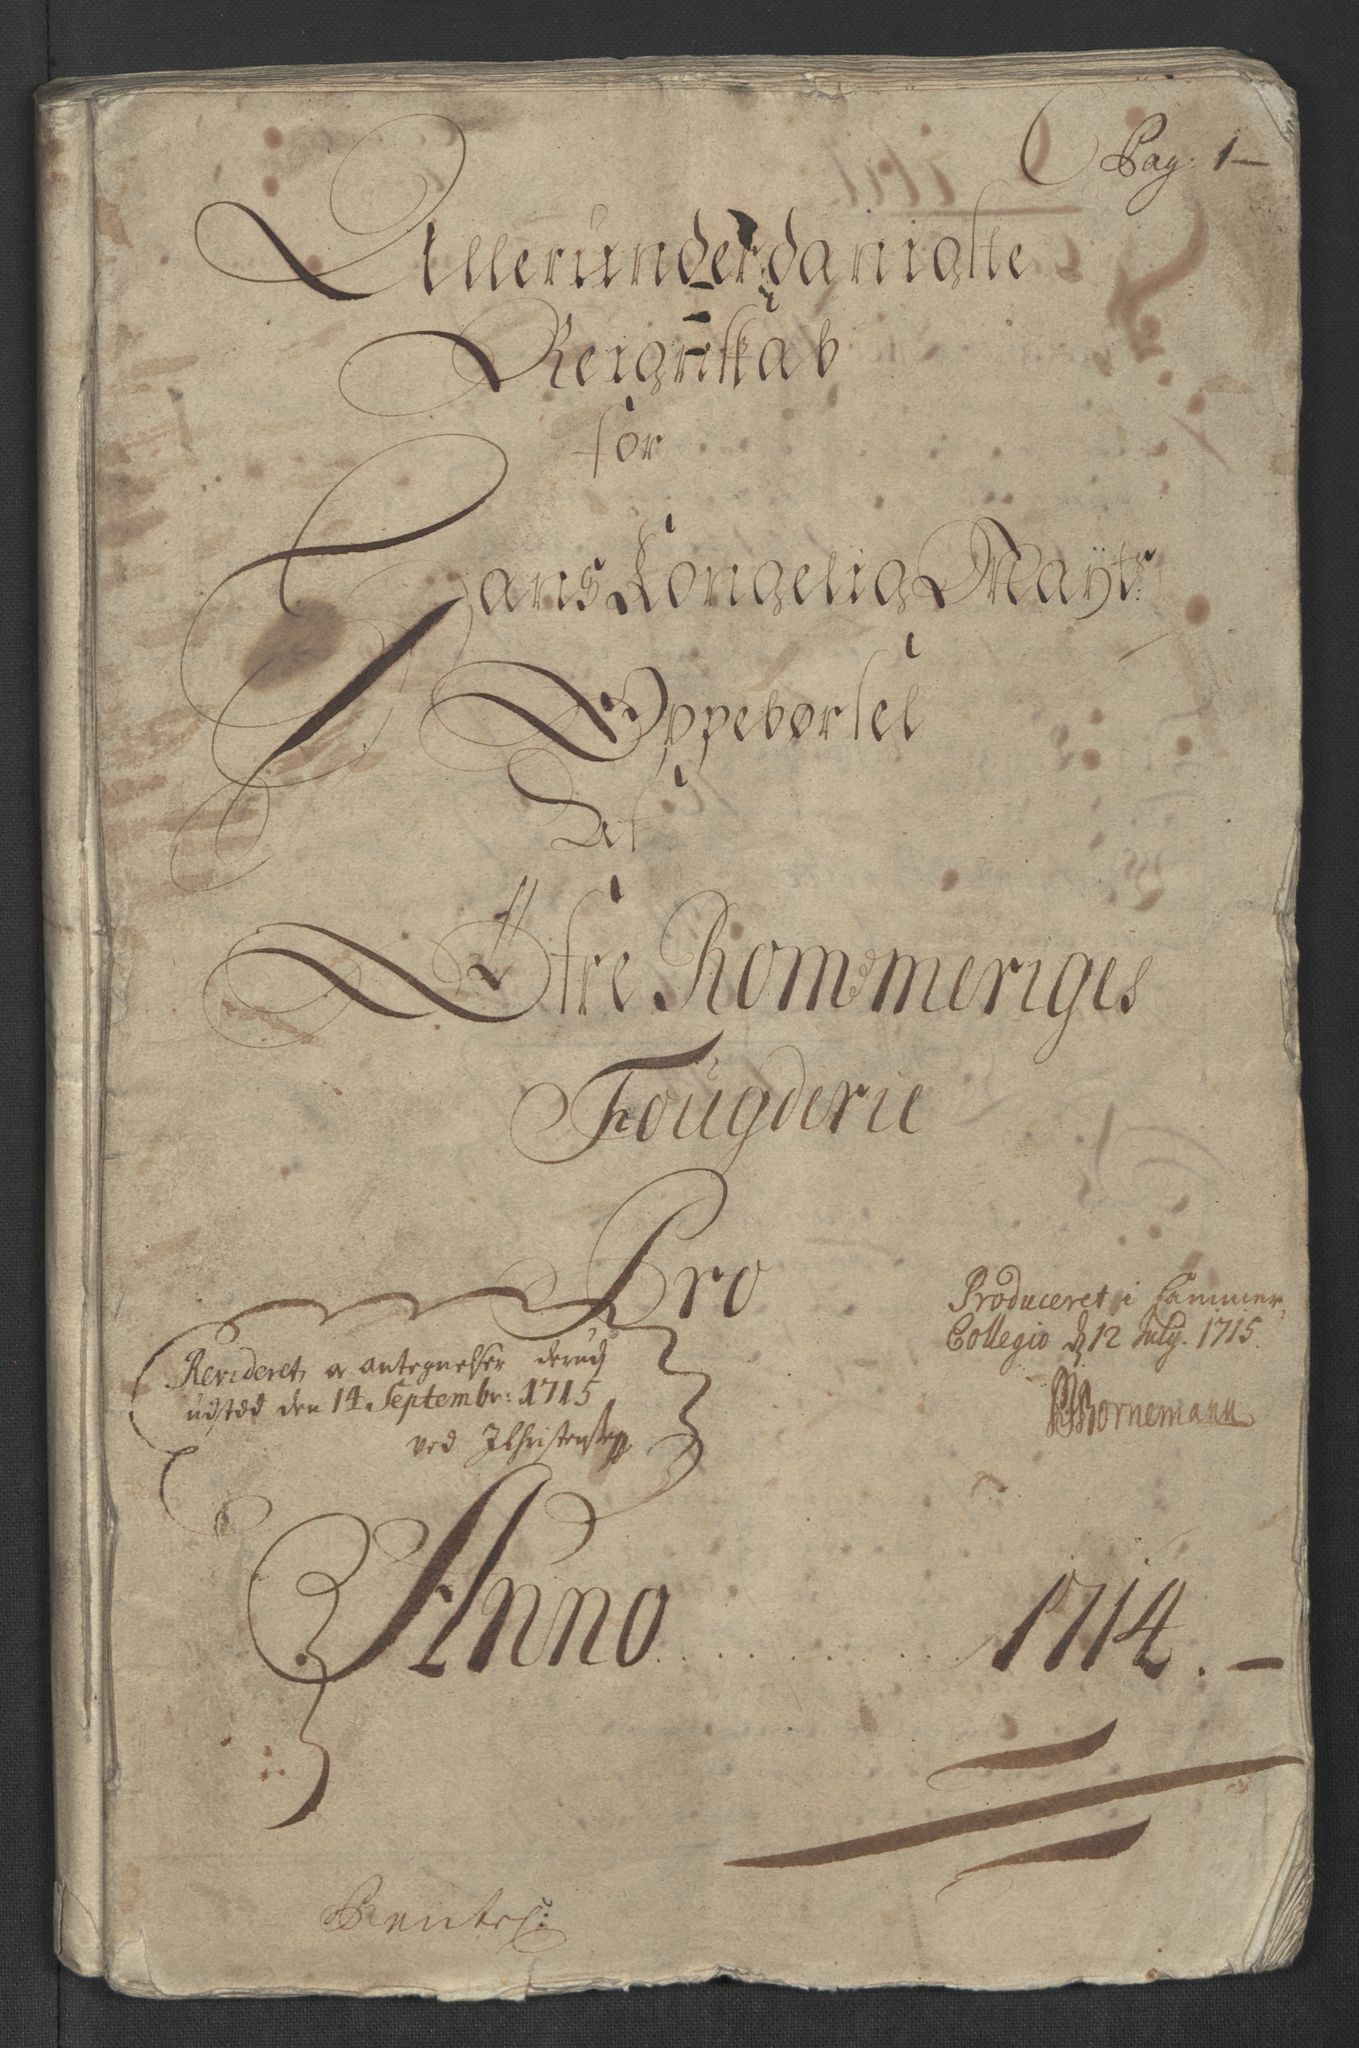 Pag. 1 —
Allerunderdanigste
Reignskab
for
Hans Kongelig Mayts:
Oppebørsel
Af
Øfre Rommeriges
Fougderie
Pro
Produceret i Cammer
Collegio d 12 July. 1715.
Bornemann
Revideret og antegnelser derud
udsted den 14 Septembr: 1715
ved JChristensen
Anno . . . . . . . . . . 1714. —